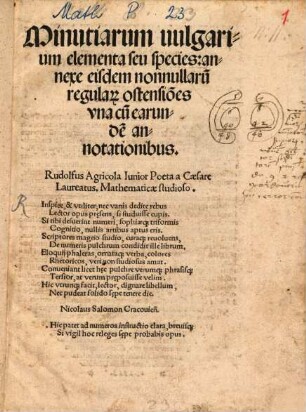 Math P. 233
1
Minutiarum vulgari-
um elementa seu species: an-
nexe eisdem nonnullarũ
regularꝝ ostensiões
vna cũ earun-
dẽ an-
notationibus.
Rudolfus Agricola Iunior Poeta a Cæsare
Laureatus, Mathematicæ studioso.
Inspice, & vtiliter, nec vanis dedite rebus
Lector opus præsens, si studuisse cupis.
Si tibi defuerint numeri, sophiæq; triformis
Cognitio, nullis artibus aptus eris.
Scriptores magno studio, curaq; reuoluens,
De numeris pulchrum condidit ille librum,
Eloquij phaleras, ornatusq; verba, colores
Rhetoricos, veri non studiosus amat.
Conueniant licet hęc pulchre verumq; phrasisq;
Tersior, at verum preposuisse velim.
Hic verumq; facit, lector, dignare libellum,
Nec pudeat solido sępe tenere die.
Nicolaus Salomon Cracouieñ.
Hic patet ad numeros instructio clara, breuisq;
Si vigil hoc releges sępe probabis opus.